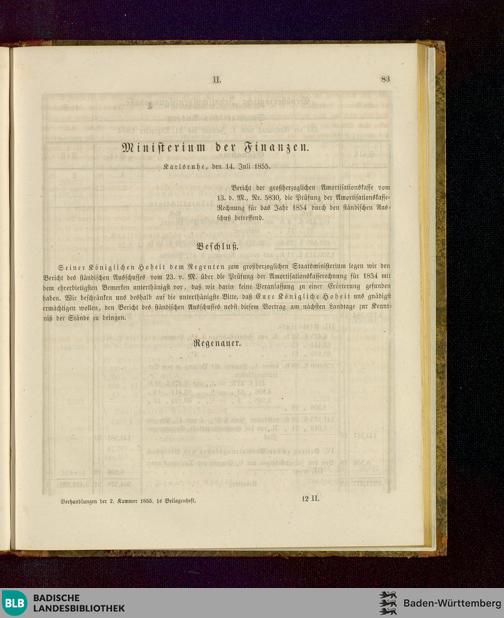 II.
83
Ministerium der Finanzen.
Karlsruhe, den 14. Juli 1855.
Bericht der großherzoglichen Amortisationskasse vom
13. d. M., Nr. 5830, die Prüfung der Amortisationskasse-
Rechnung für das Jahr 1854 durch den ständischen Aus-
schuß betreffend.
Beschluß.
Seiner Königlichen Hoheit dem Regenten zum großherzoglichen Staatsministerium legen wir den
Bericht des ständischen Ausschusses vom 23. v. M. über die Prüfung der Amortisationskasserechnung für 1854 mit
dem ehrerbietigsten Bemerken unterthänigst vor, daß wir darin keine Veranlassung zu einer Erörterung gefunden
haben. Wir beschränken uns deshalb auf die unterthänigste Bitte, daß Eure Königliche Hoheit uns gnädigst
ermächtigen wollen, den Bericht des ständischen Ausschusses nebst diesem Vortrag am nächsten Landtage zur Kennt-
niß der Stände zu bringen.
Regenauer.
Verhandlungen der 2. Kammer 1855. 16 Beilagenheft.
12 II.
BLB
BADISCHE
LANDESBIBLIOTHEK
Baden-Württemberg